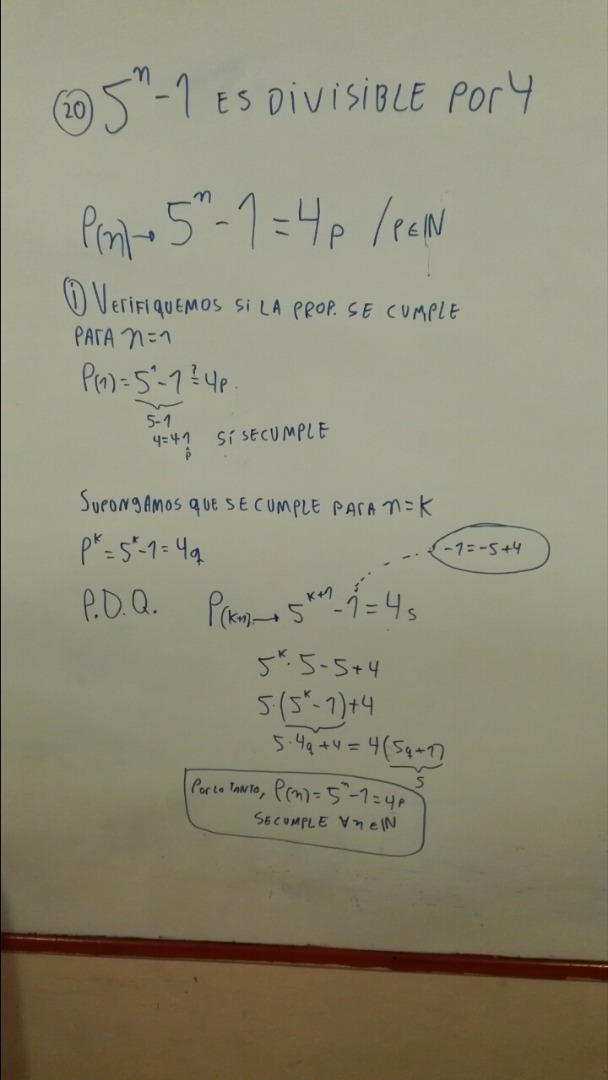 20 5ⁿ-1 ES DIVISIBLE POR 4
P(n)→ 5ⁿ-1=4p /p∈ℕ
i) VERIFIQUEMOS SI LA PROP. SE CUMPLE
PARA n=1
P(1)=5¹-1≟4p.
5-1
4=4·1 SÍ SE CUMPLE
p
SUPONGAMOS QUE SE CUMPLE PARA n=K
Pᴷ=5ᴷ-1=4q
-1=-5+4
P.D.Q. P(K+1)→ 5ᴷ⁺¹-1=4s
5ᴷ·5-5+4
5·(5ᴷ-1)+4
5·4q+4=4(5q+1)
s
POR LO TANTO, P(n)=5ⁿ-1=4p
SE CUMPLE ∀n∈ℕ